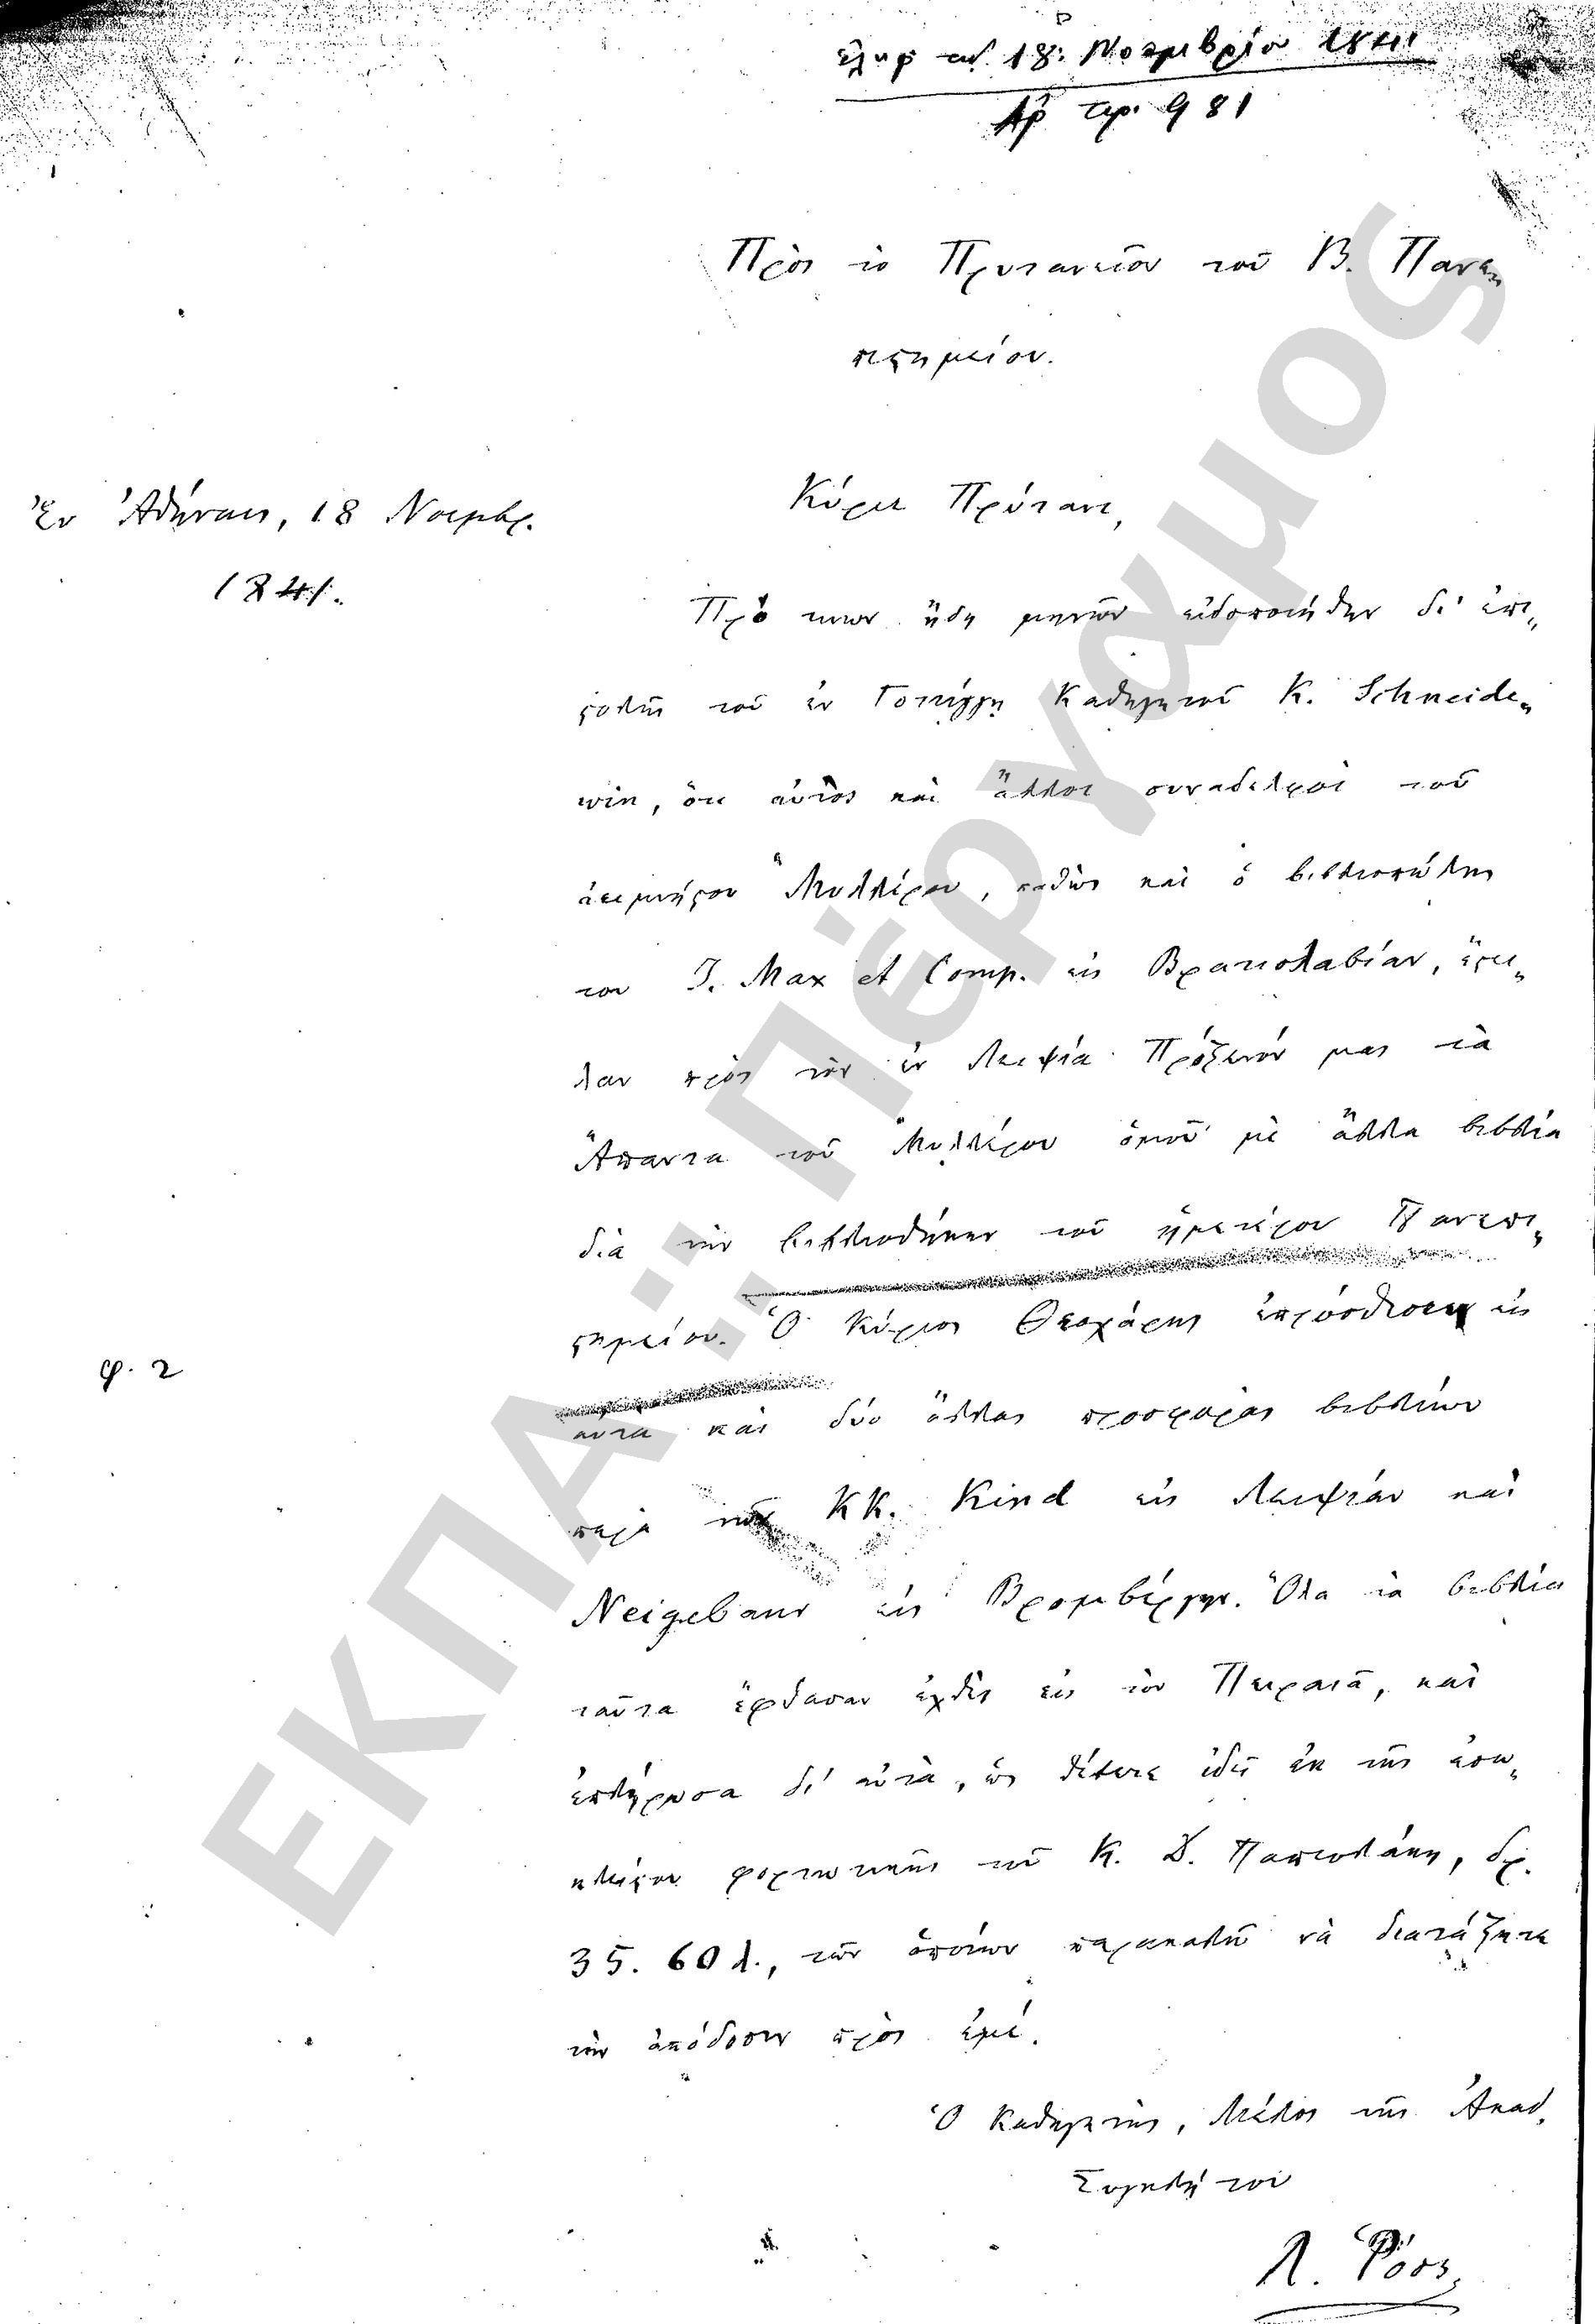 ἐλήφ τὴν 18: Νοεμβρίου 1841
Ἀρ πρ. 981
Πρὸς τὸ Πρυτανεῖον τοῦ Β. Πανε„
πιςημείου.
Ἐν Ἀθήναις, 18 Νοεμβρ.
1841.
Κύριε Πρύτανι,
Πρό τινων ἤδη μηνῶν εἰδοποιήθην δι' ἐπι„
ςολῆς τοῦ ἐν Γοττίγγῃ Καθηγητοῦ Κ. Schneide„
win, ὅτι αὐτὸς καὶ ἄλλοι συνάδελφοι τοῦ
ἀειμνήςου Μυλλέρου, καθὼς καὶ ὁ βιβλιοπώλης
του J. Max et Comp. εἰς Βρατισλαβίαν, ἔςει„
λαν πρὸς τὸν ἐν Λειψίᾳ Πρόξενόν μας τὰ
Ἅπαντα τοῦ Μυλλέρου ὁμοῦ μὲ ἄλλα βιβλία
διὰ τὴν βιβλιοθήκην τοῦ ἡμετέρου Πανεπι„
ςημείου. Ὁ Κύριος Θεοχάρης ἐπρόσθεσεν εἰς
αὐτὰ καὶ δύο ἄλλας προσφορὰς βιβλίων
παρὰ τῶν ΚΚ. Kind εἰς Λειψίαν καὶ
Neigebaur εἰς Βρομβέργην. Ὅλα τὰ βιβλία
ταῦτα ἔφθασαν ἐχθὲς εἰς τὸν Πειραιᾶ, καὶ
ἐπλήρωσα δι' αὐτὰ, ὡς θέλετε ἰδεῖ ἐκ τῆς ἐσω„
κλείςου φορτωτικῆς τοῦ Κ. Δ. Παπιολάκη, δρ.
35. 60 λ., τῶν ὁποίων παρακαλῶ νὰ διατάξητε
τὴν ἀπόδοσιν πρὸς ἐμέ.
φ. 2
Ὁ Καθηγητὴς, Μέλος τῆς Ἀκαδ.
Συγκλήτου
Λ. Ῥόσς
ΕΚΠΑ :: Πέργαμος